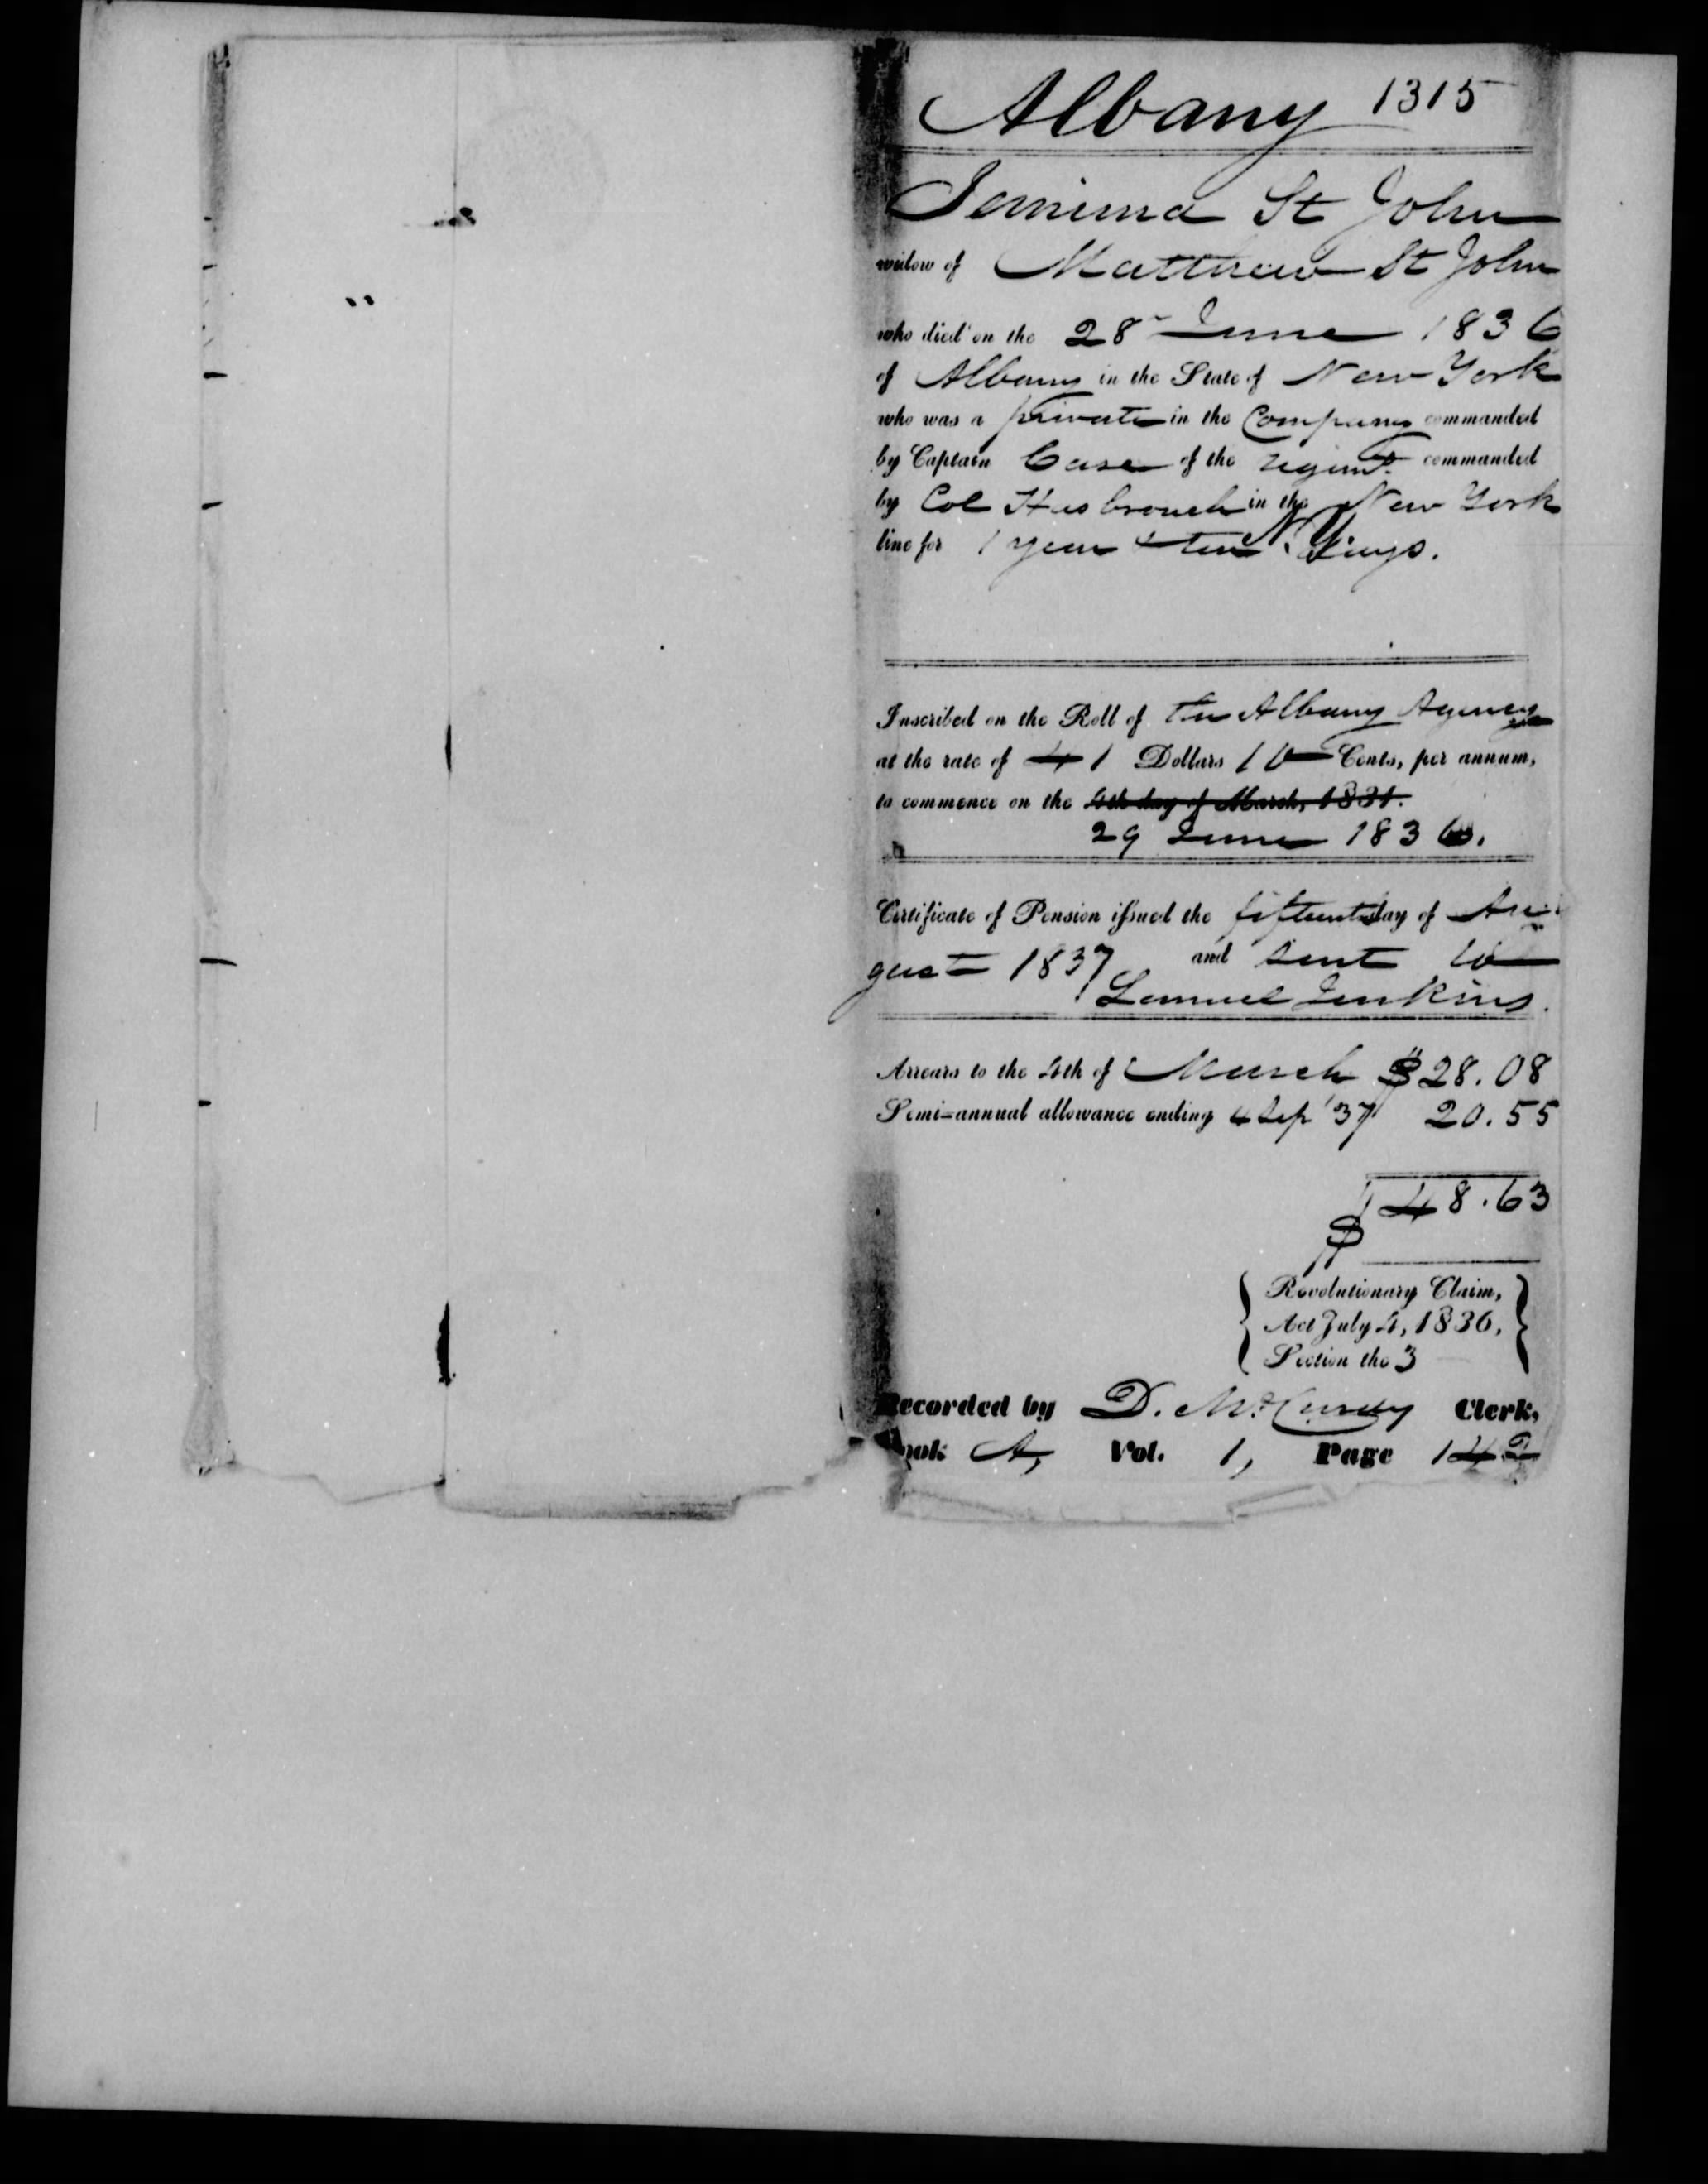 Albany 1315
Jemima St John
widow of Matthew St John
who died on the 28 June 1836
of Albany in the State of New York
who was a private in the Company commanded
by Captain Case of the regimt commanded
by Col Hasbrouck in the New York
line for 1 year & ten Days.
Inscribed on the Roll of the Albany Agency
at the rate of 41 Dollars 10 Cents, per annum,
to commence on the 4th day of March, 1831.
29 June 1836.
Certificate of Pension issued the fifteenth day of Au
gust 1837 and sent to
Lemuel Jenkins.
Arrears to the 4th of March $28.08
Semi-annual allowance ending 4 Sep '37 20.55
$48.63
Revolutionary Claim,
Act July 4, 1836,
Section the 3
Recorded by D. McCurdy Clerk,
Book A, Vol. 1, Page 142